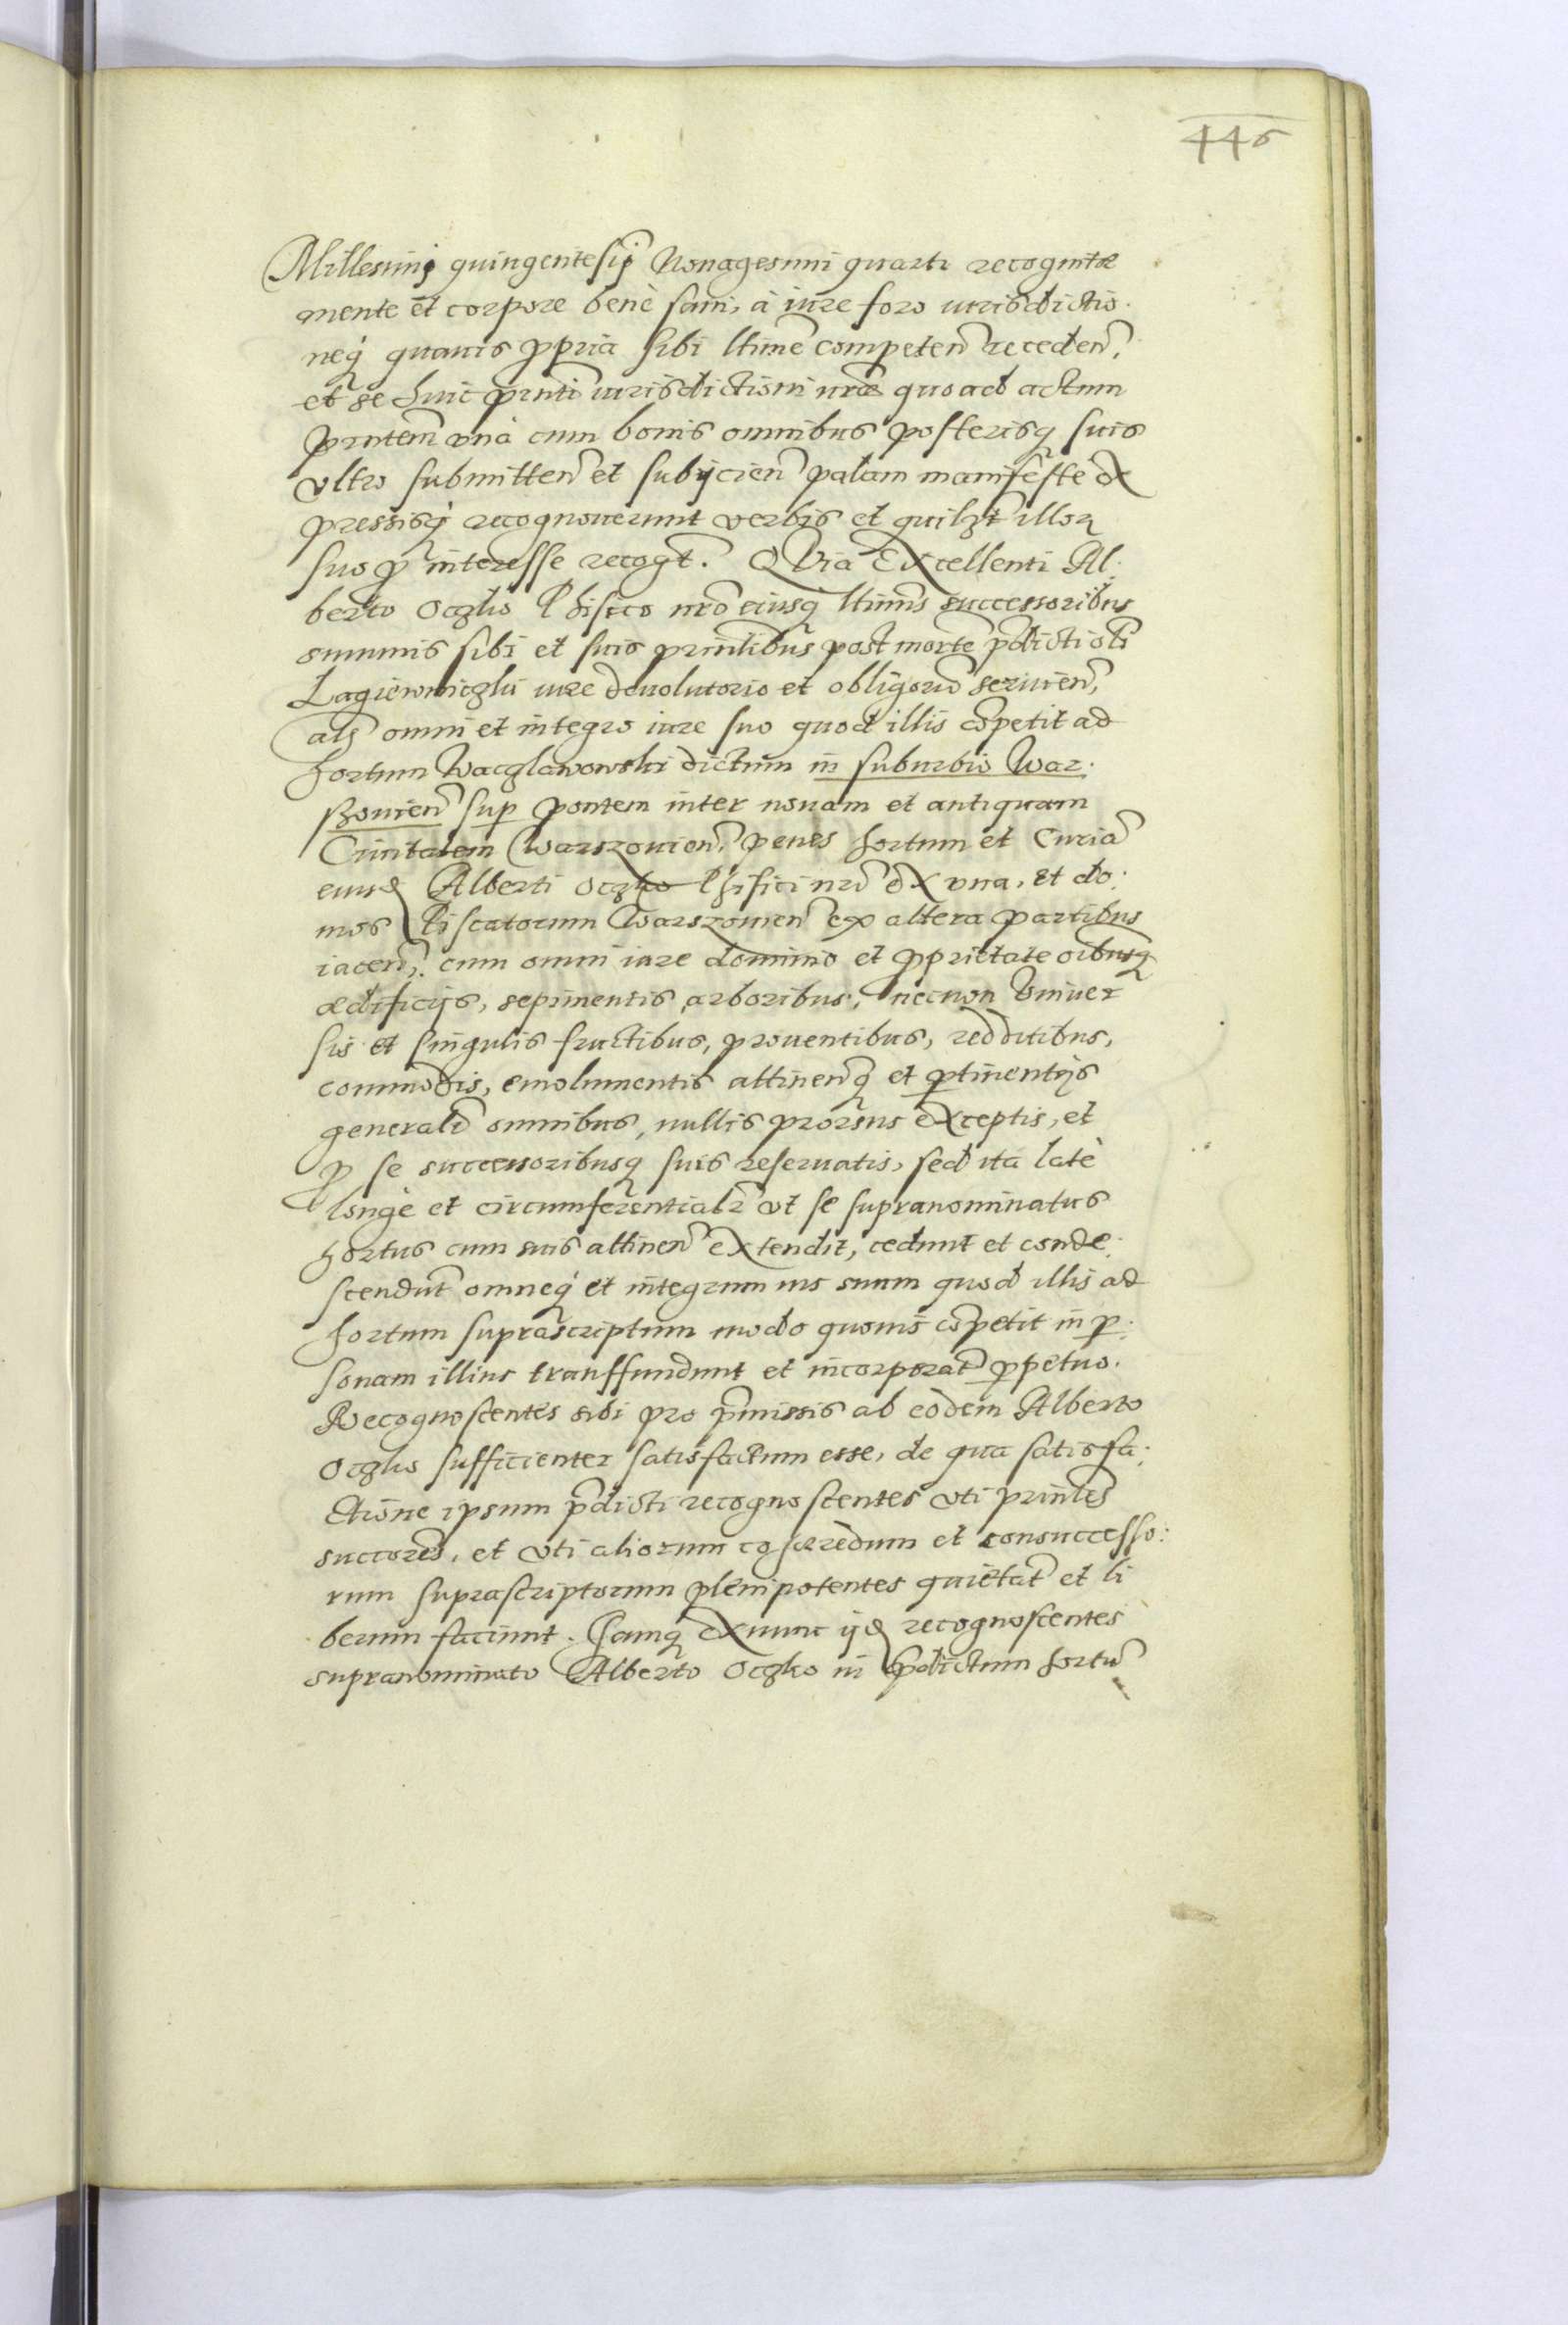 446
Millesimi quingentesi͂ Nonagesimi quarti recognitae
mente et corpore benè sani, à iure foro iurisdictio.
neq̨ quauis ꝓpria sibi ltime͂ competen͂ receden͂,
et se huic prnti͂ iurisdictioni nr͂ae quoad actum
prntem͂ vnà cum bonis omnibus posterisq̨ suis
vltro submitten͂ et subijcien͂ palam manifeste ex
pressisq̨ recognouerunt verbis et quilꝫt illoꝝ
suo ꝓ interesse recogt͂. QVia Excellenti Al:
berto Oczko Phisico nr͂o eiusq̨ ltimis͂ successoribus
summis sibi et suis prinlibus͂ post morte͂ p͂dicti oli͂
Lagiewniczki iure deuolutorio et obligorio͂ seruien͂,
als͂ omni et integro iure suo quod illis co͂petit ad
hortum Waczlawowski dictum in suburbio War:
szouien͂ sup̱ pontem inter nouam et antiquam
Ciuitatem Warszouien͂, penes hortum et Curia͂
eiusdꝫ Alberti Oczko Phisici nri͂ ex vna, et do:
mos Piscatorum Warszouien͂ ex altera partibus
iacen͂, cum omni iure dominio et ꝓprietate oi͂busq̨
aedificijs, sepimentis, arboribus, necnon vniuer
sis et singulis fructibus, prouentibus, redditibus,
commodis, emolumentis attinen͂q̨ et p̱tinentijs
generalr͂ omnibus, nullis prorsus exceptis, et
ꝓ se successoribusq̨ suis reseruatis, sed ita latè
longè et circumferentialr͂ vt se supranominatus
hortus cum suis attinen͂ extendit, cedunt et conde:
scendu͂t omneq̨ et integrum ius suum quod illis ad
hortum suprascriptum modo quouis co͂petit in p̱:
sonam illius transfundunt et incorporat͂ p̱petuo.
Recognoscentes sibi pro p͂missis ab eodem Alberto
Oczko sufficienter satisfactum esse, de qua satisfa:
ctione ipsum p͂dicti recognoscentes vti prinles͂
succores͂, et vti aliorum cohaeredum et consuccesso:
rum suprascriptorum plenipotentes quietat͂ et li
berum faciunt. Iamq̨ exnunc ijdꝫ recognoscentes
supranominato Alberto Oczko in p͂dictum hortu͂